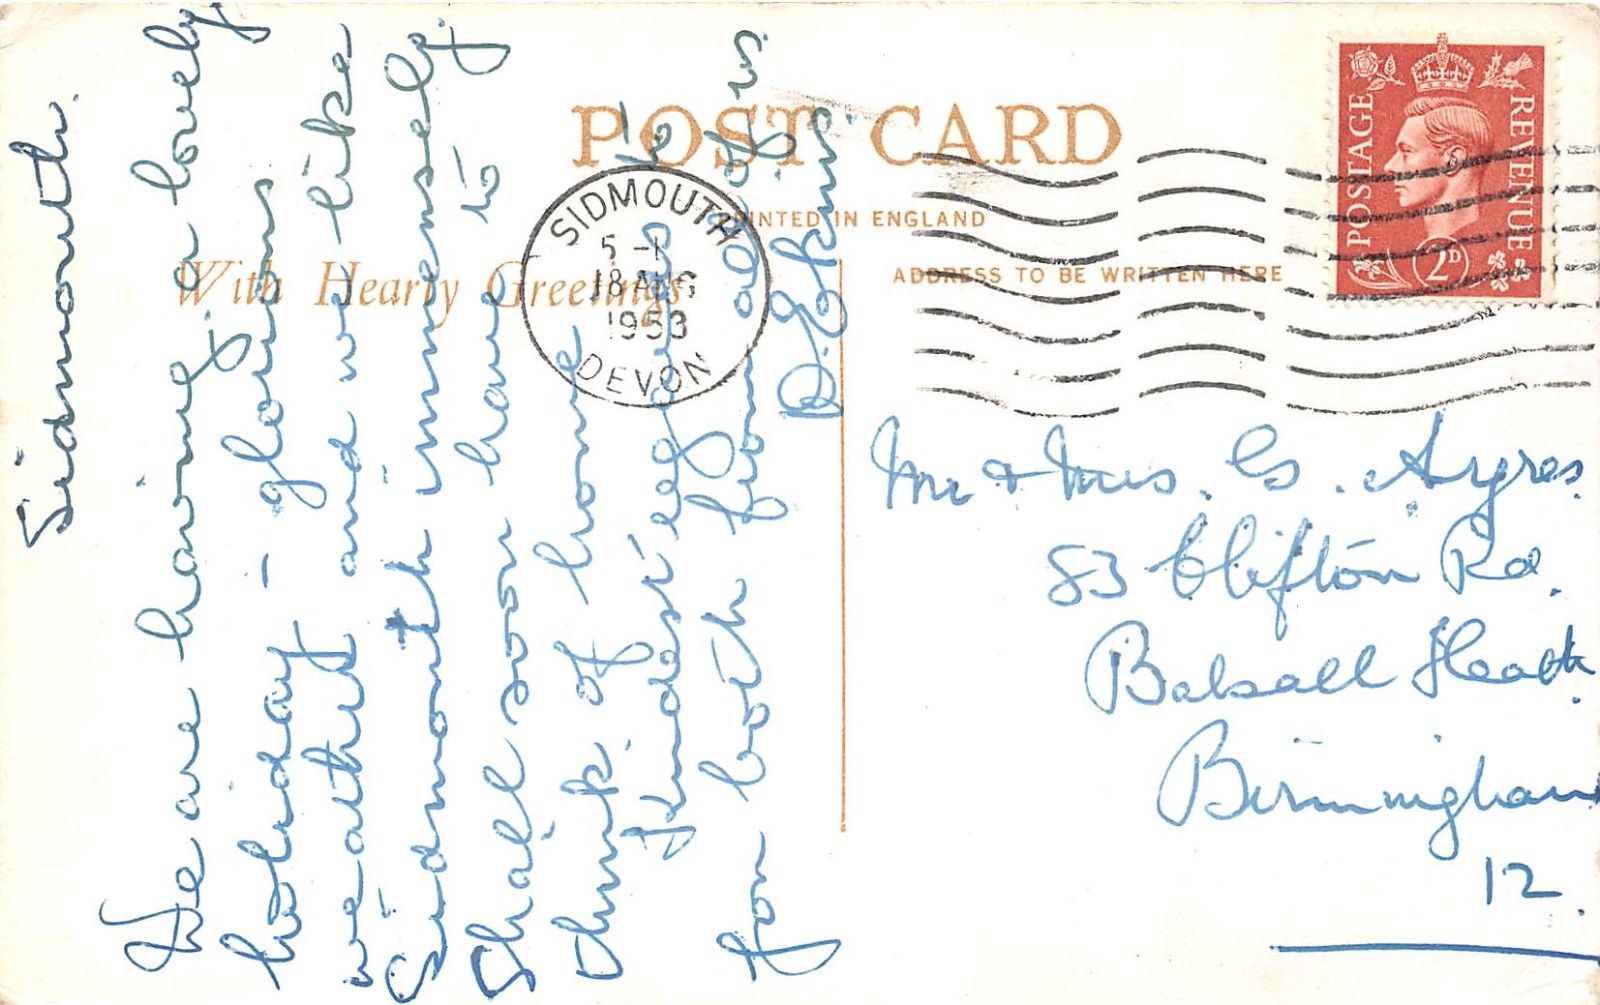 POST CARD
PRINTED IN ENGLAND
With Hearty Greetings
ADDRESS TO BE WRITTEN HERE
SIDMOUTH
5 -
18 AUG
1953
DEVON
POSTAGE
REVENUE
2D
Sidmouth.
We are having a lovely
holiday - glorious
weather and we like
Sidmouth immensely.
Shall soon have to
think of home
Kindest regards to
you both from all of us
D. Ekins.
Mr & Mrs. G. Ayres.
83 Clifton Rd.
Balsall Heath.
Birmingham
12.